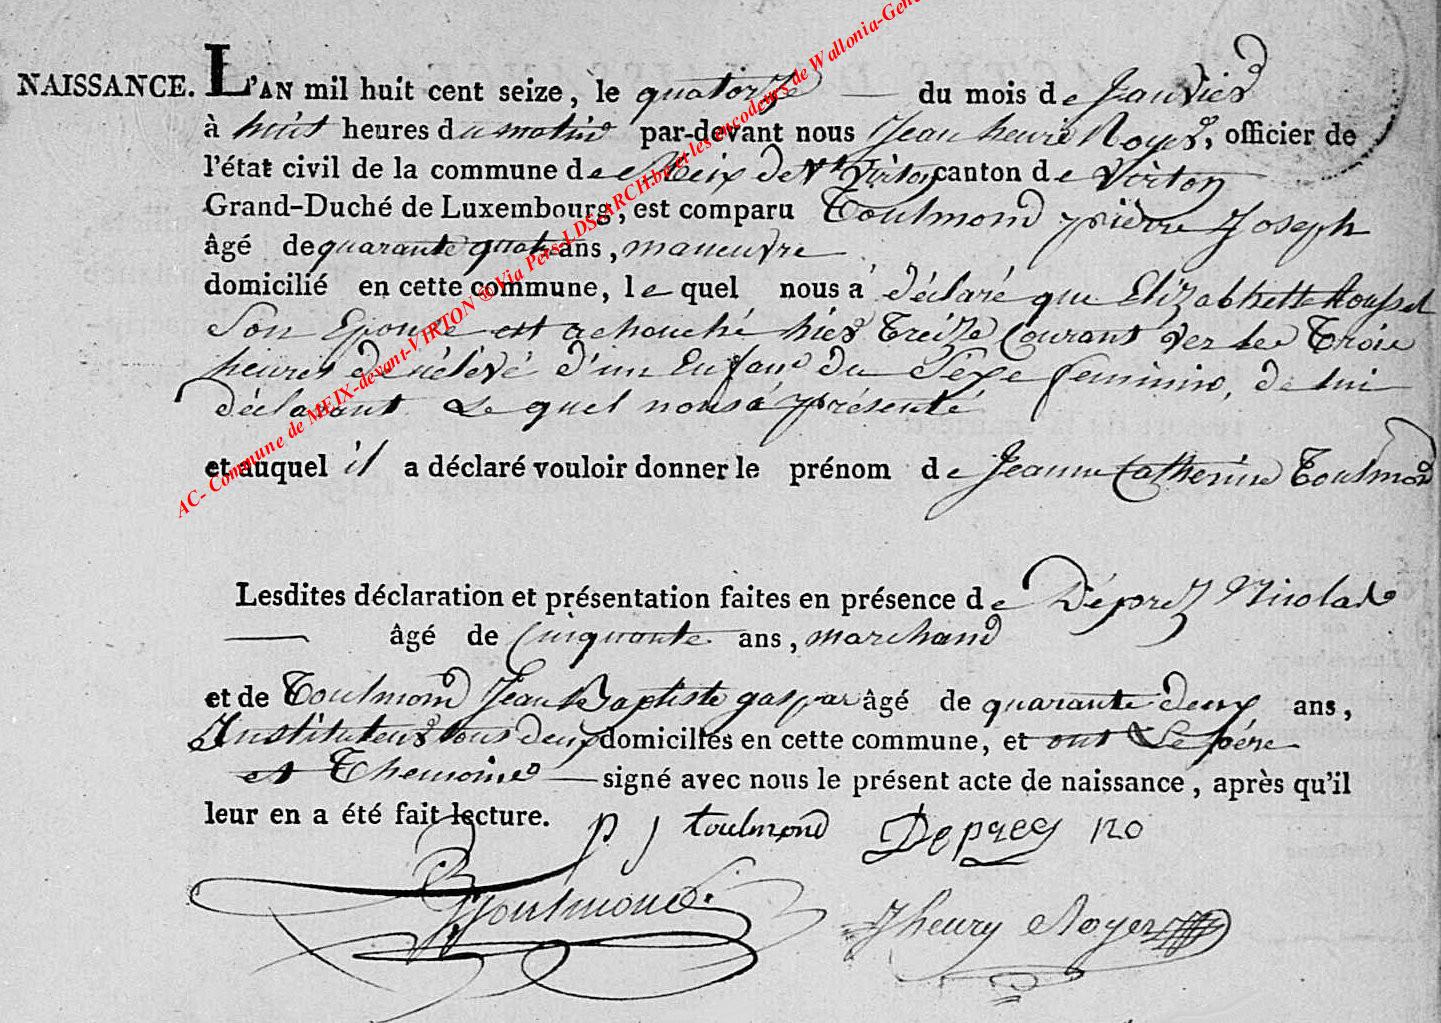 NAISSANCE. L'AN mil huit cent seize, le quatorze du mois de Janvier
à huit heures du matin par-devant nous Jean henri Royer, officier de
l'état civil de la commune de Meix devt Virton canton de Virton
Grand-Duché de Luxembourg, est comparu Toulmond pierre Joseph
âgé de quarante quatre ans, maneuvre
domicilié en cette commune, le quel nous a déclaré que Elizabhette Roussel
Son Epouse est achouché hier Treize Courant ver les Trois
heures de rélevé d'un Enfant du Sexe feminin, de lui
déclarant Le quel nous a présenté
et auquel il a déclaré vouloir donner le prénom de Jeanne Catherine Toulmond
Lesdites déclaration et présentation faites en présence de Déprez Nicolas
âgé de Cinquante ans, marchand
et de Toulmond Jean Baptiste gaspar âgé de quarante deux ans,
Instituteur tous deux domiciliés en cette commune, et ont Le père
et Themoins signé avec nous le présent acte de naissance, après qu'il
leur en a été fait lecture. p j toulmond Deprez no
Toulmond jhenry Royer
AC- Commune de MEIX-devant-VIRTON @ Via Pers-LDS-ARCH.be et les encodeurs de Wallonia-Gen